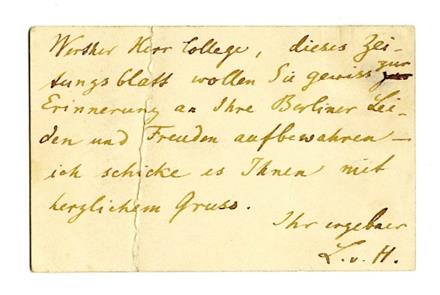 Werther Herr College, dieses Zei-
tungsblatt wollen Sie gewiss zur
Erinnerung an Ihre Berliner Lei-
den und Freuden aufbewahren —
ich schicke es Ihnen mit
herzlichem Gruss.
Ihr ergebner
L. v. H.